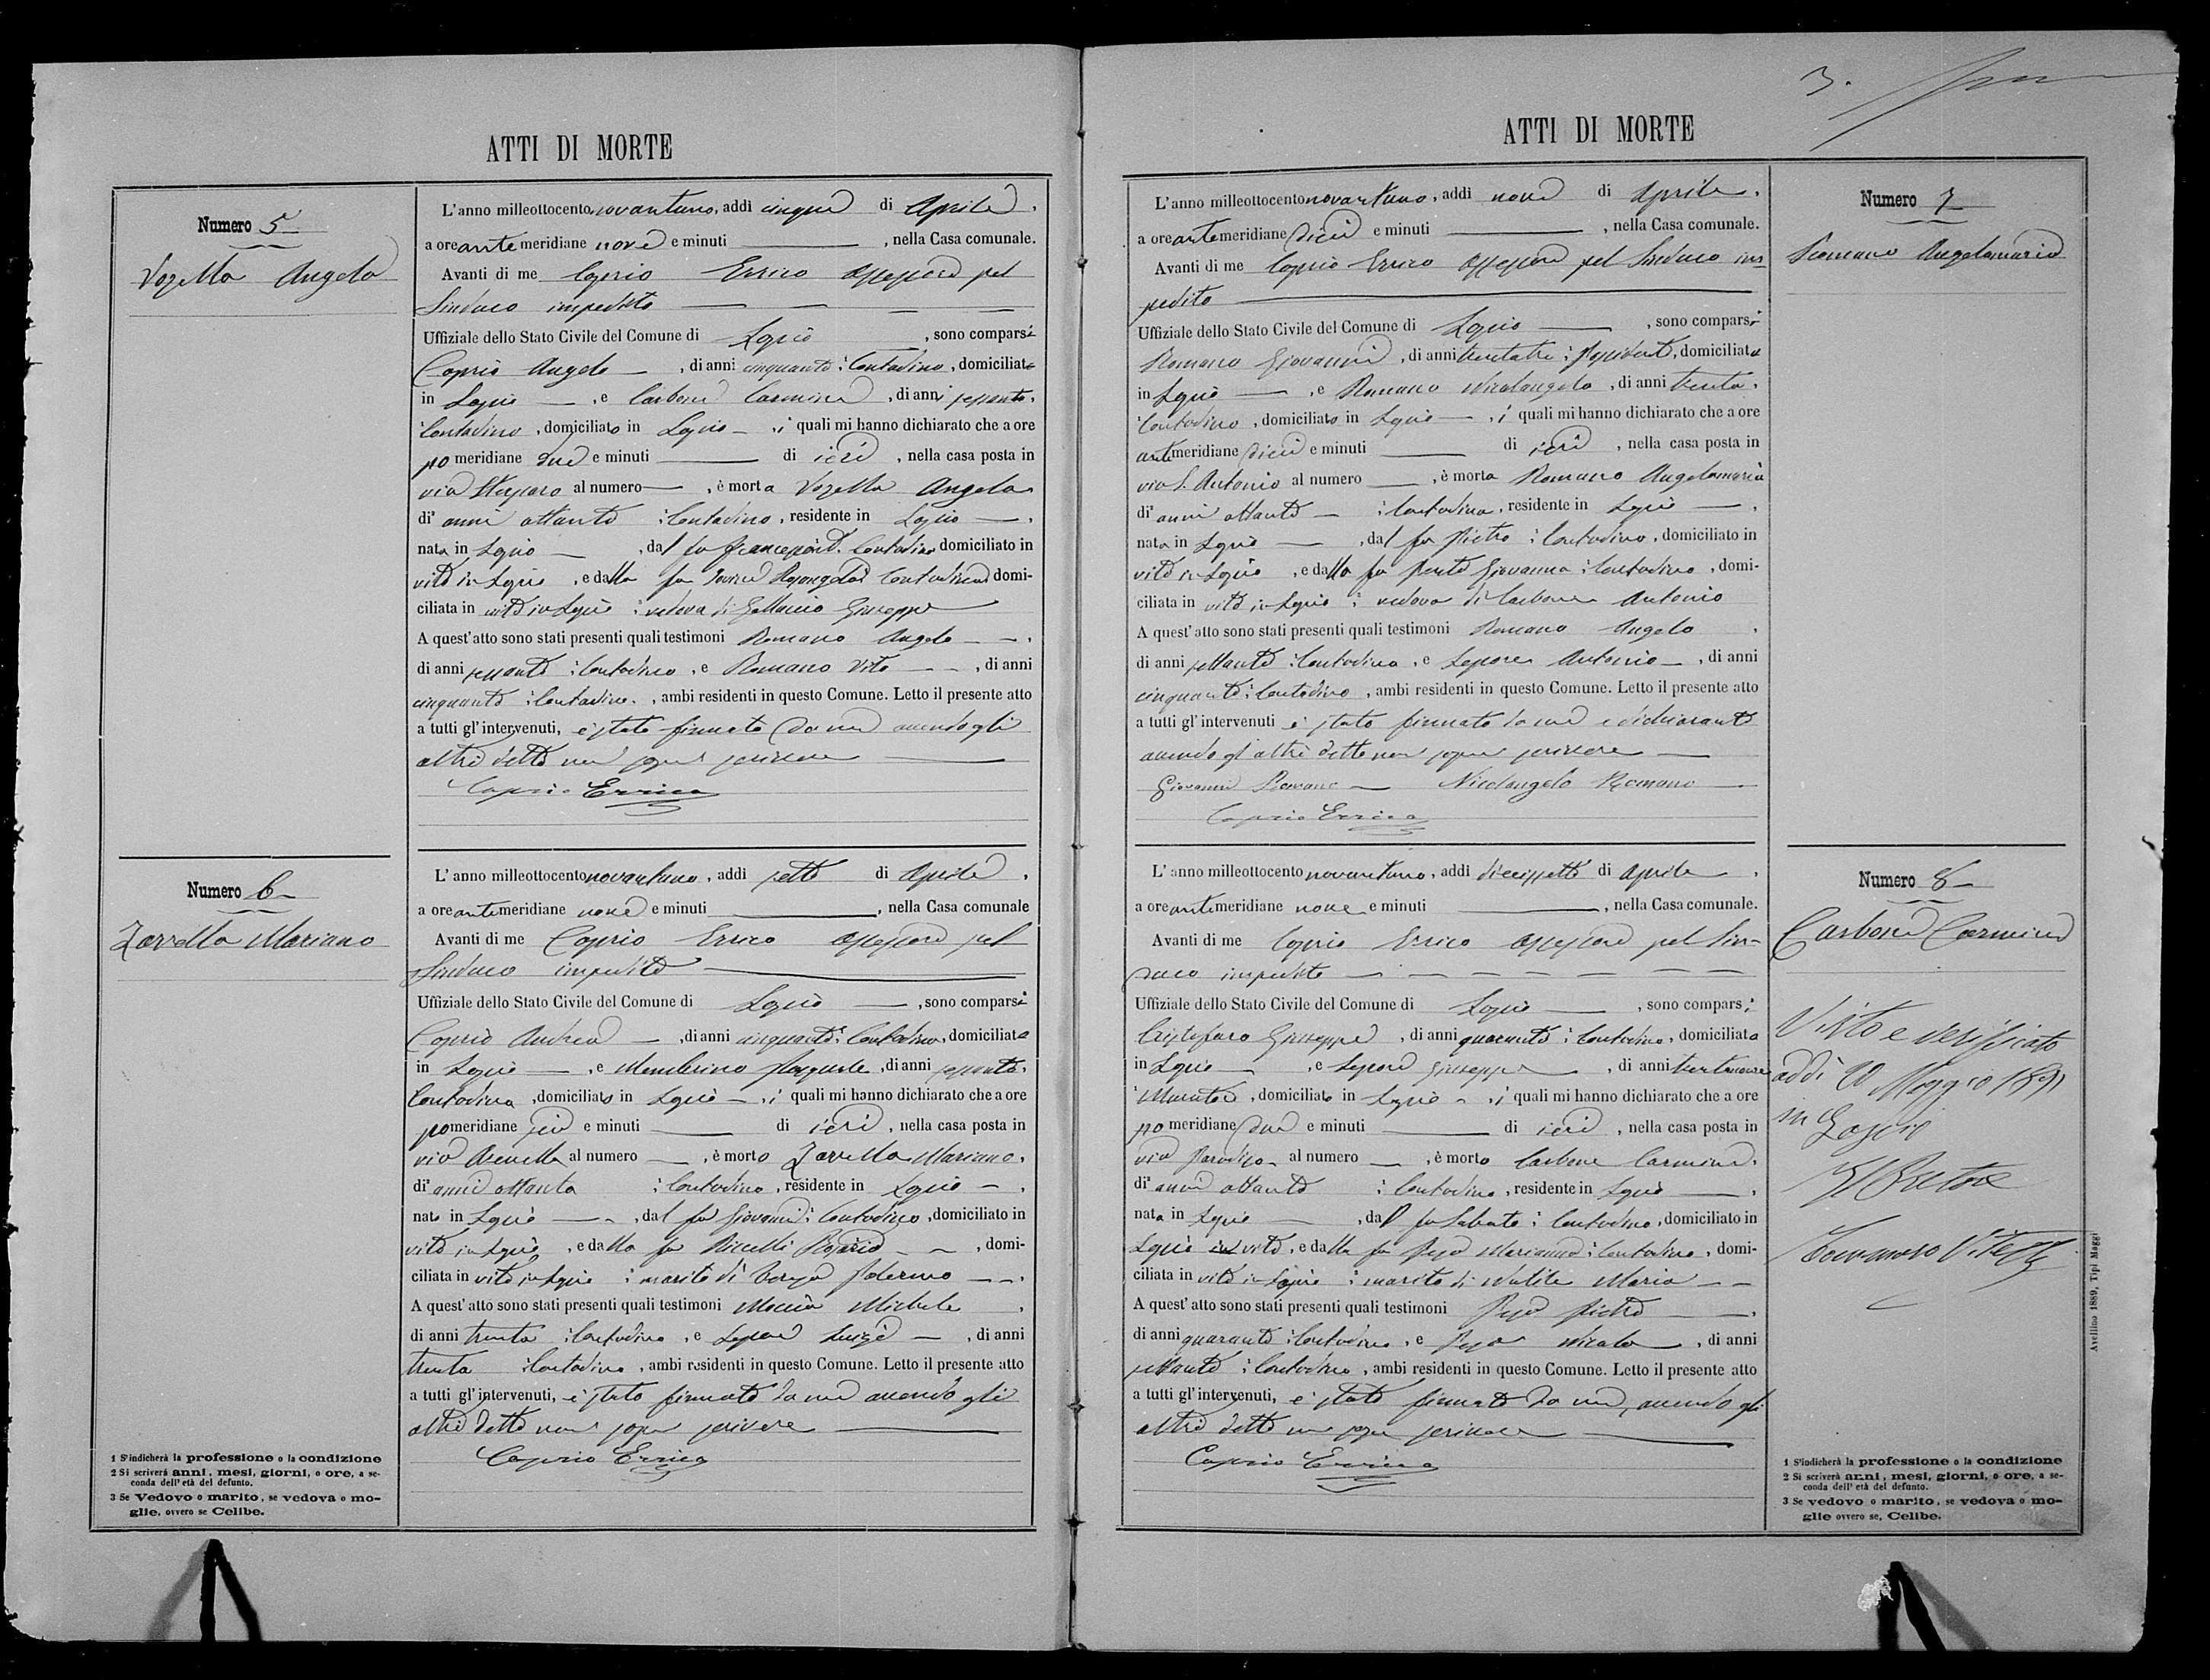 ATTI DI MORTE
Numero 5
Vozella Angela
L'anno milleottocentonovantuno, addì cinque di Aprile,
a ore antemeridiane nove e minuti ———, nella Casa comunale.
Avanti di me Caprio Errico Assessore pel
Sindaco impedito — — — —
Uffiziale dello Stato Civile del Comune di Lapio —, sono comparsi
Caprio Angelo —, di anni cinquanta: Contadino, domiciliato
in Lapio —, e Carbone Carmine, di anni sessanta,
Contadino, domiciliato in Lapio —, i quali mi hanno dichiarato che a ore
pomeridiane due e minuti ——— di ieri, nella casa posta in
via al numero —, è morta Vozella Angela
di anni ottanta : Contadina, residente in Lapio —,
nata in Lapio —, dal fu : Contadino domiciliato in
vita in Lapio, e dalla fu Contadina domi-
ciliata in vita in Lapio : vedova di Giuseppe
A quest'atto sono stati presenti quali testimoni Romano Angelo — —,
di anni sessanta : Contadino, e Romano Vito — —, di anni
cinquanta : Contadino, ambi residenti in questo Comune. Letto il presente atto
a tutti gl'intervenuti, è stato firmato da me avendo gli
altri detto non saper scrivere ———
Caprio Errico
Numero 6
Zarrella Mariano
L'anno milleottocentonovantuno, addì sette di Aprile,
a ore antemeridiane nove e minuti ———, nella Casa comunale
Avanti di me Caprio Errico Assessore pel
Sindaco impedito ———
Uffiziale dello Stato Civile del Comune di Lapio —, sono comparsi
Caprio Andrea —, di anni cinquanta: Contadino, domiciliato
in Lapio —, e Pasquale, di anni sessanta,
Contadino, domiciliato in Lapio —, i quali mi hanno dichiarato che a ore
pomeridiane sei e minuti ——— di ieri, nella casa posta in
via al numero —, è morto Zarrella Mariano,
di anni ottanta : Contadino, residente in Lapio —,
nato in Lapio — —, dal fu Giovanni: Contadino, domiciliato in
vita in Lapio, e dalla fu — —, domi-
ciliata in vita in Lapio : marito di — —.
A quest'atto sono stati presenti quali testimoni Moccia Michele,
di anni trenta : Contadino, e Lepore Luigi —, di anni
trenta : Contadino, ambi residenti in questo Comune. Letto il presente atto
a tutti gl'intervenuti, è stato firmato da me avendo gli
altri detto non saper scrivere ———
Caprio Errico
1 S'indicherà la professione o la condizione
2 Si scriverà anni, mesi, giorni, o ore, a se-
conda dell'età del defunto.
3 Se Vedovo o marito, se vedova o mo-
glie, ovvero se Celibe.
3.
ATTI DI MORTE
L'anno milleottocentonovantuno, addì nove di Aprile,
a ore antemeridiane dieci e minuti ———, nella Casa comunale.
Avanti di me Caprio Errico Assessore pel Sindaco im-
pedito ———
Uffiziale dello Stato Civile del Comune di Lapio —, sono comparsi
Romano Giovanni, di anni trentatre : Possidente, domiciliato
in Lapio —, e Romano Nicolangelo, di anni trenta,
Contadino, domiciliato in Lapio —, i quali mi hanno dichiarato che a ore
antimeridiane dieci e minuti ——— di ieri, nella casa posta in
via S. Antonio al numero —, è morta Romano Angelamaria
di anni ottanta — : Contadina, residente in Lapio —,
nata in Lapio —, dal fu Pietro : Contadino, domiciliato in
vita in Lapio, e dalla fu Giovanna : Contadina, domi-
ciliata in vita in Lapio : vedova di Carbone Antonio
A quest'atto sono stati presenti quali testimoni Romano Angelo,
di anni settanta : Contadino, e Lepore Antonio —, di anni
cinquanta : Contadino, ambi residenti in questo Comune. Letto il presente atto
a tutti gl'intervenuti è stato firmato da me e dichiaranti
avendo gl'altri detto non saper scrivere —
Giovanni Romano — Nicolangelo Romano —
Caprio Errico
Numero 7
Romano Angelamaria
L'anno milleottocentonovantuno, addì diecissette di Aprile,
a ore antemeridiane nove e minuti ———, nella Casa comunale.
Avanti di me Caprio Errico Assessore pel Sin-
daco impedito — — — — — — —
Uffiziale dello Stato Civile del Comune di Lapio —, sono comparsi
Cristofaro Giuseppe, di anni quaranta : Contadino, domiciliato
in Lapio —, e Lepore Giuseppe, di anni trentanove
: Muratore, domiciliato in Lapio —, i quali mi hanno dichiarato che a ore
pomeridiane due e minuti ——— di ieri, nella casa posta in
via al numero —, è morto Carbone Carmine,
di anni ottanta : Contadino, residente in Lapio —,
nato in Lapio —, dal fu Sabato : Contadino, domiciliato in
Lapio in vita, e dalla fu Marianna : Contadina, domi-
ciliata in vita in Lapio : marito di Maria — —
A quest'atto sono stati presenti quali testimoni Pietro —,
di anni quaranta : Contadino, e Nicola, di anni
settanta : Contadino, ambi residenti in questo Comune. Letto il presente atto
a tutti gl'intervenuti, è stato firmato da me, avendo gli
altri detto non saper scrivere ———
Caprio Errico
Numero 8
Carbone Carmine
Visto e verificato
addì 20 Maggio 1891
in Lapio
Il Pretore
1 S'indicherà la professione o la condizione
2 Si scriverà anni, mesi, giorni, o ore, a se-
conda dell'età del defunto.
3 Se vedovo o marito, se vedova o mo-
glie ovvero se, Celibe.
Avellino 1889, Tipi Maggi